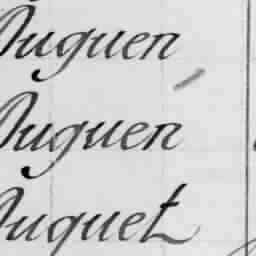 Duguen
Duguen
Duquet